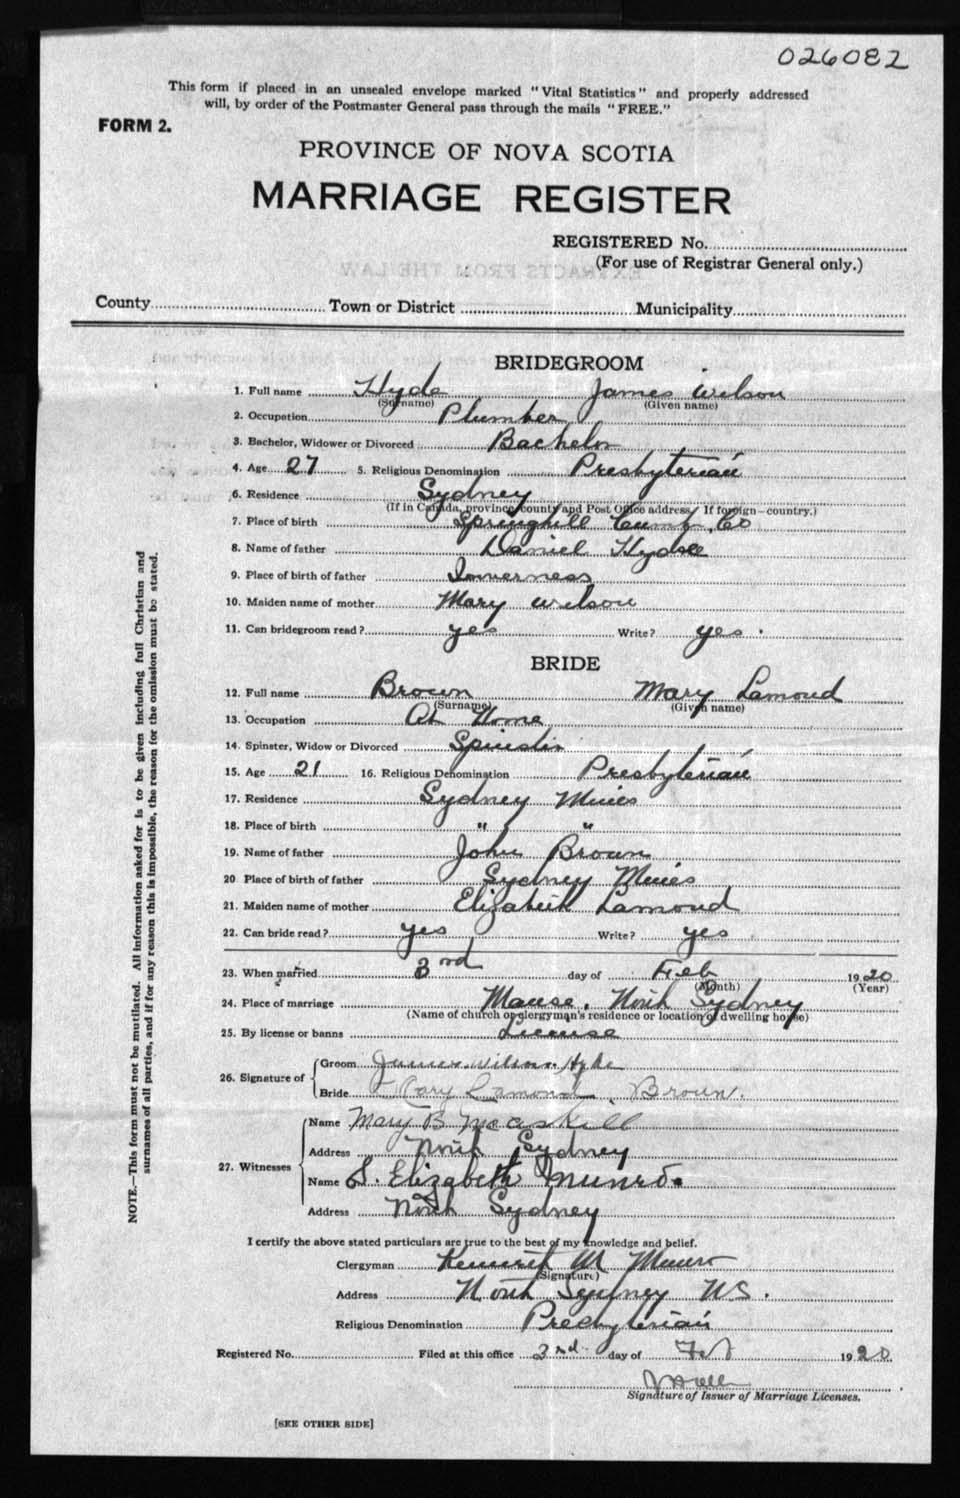 026082
This form if placed in an unsealed envelope marked "Vital Statistics" and properly addressed
will, by order of the Postmaster General pass through the mails "FREE."
FORM 2.
PROVINCE OF NOVA SCOTIA
MARRIAGE REGISTER
REGISTERED No.
(For use of Registrar General only.)
County Town or District Municipality
BRIDEGROOM
1. Full name Hyde James Wilson
(Surname) (Given name)
2. Occupation Plumber
3. Bachelor, Widower or Divorced Bachelor
4. Age 27 5. Religious Denomination Presbyterian
6. Residence Sydney
(If in Canada, province, county and Post Office address. If foreign—country.)
7. Place of birth Springhill Cumb. Co
8. Name of father Daniel
9. Place of birth of father Inverness
10. Maiden name of mother Mary Wilson
11. Can bridegroom read? yes Write? yes.
BRIDE
12. Full name Brown Mary Lamond
(Surname) (Given name)
13. Occupation At Home
14. Spinster, Widow or Divorced Spinster
15. Age 21 16. Religious Denomination Presbyterian
17. Residence Sydney Mines
18. Place of birth " "
19. Name of father John Brown
20 Place of birth of father Sydney Mines
21. Maiden name of mother Elizabeth Lamond
22. Can bride read? yes Write? yes
23. When married 3rd day of Feb 1920
(Month) (Year)
24. Place of marriage Manse, North Sydney
(Name of church or clergyman's residence or location of dwelling house)
25. By license or banns License
26. Signature of
Groom James Wilson Hyde
Bride Mary Lamond Brown.
27. Witnesses
Name Mary B. McAskill
Address North Sydney
Name S. Elizabeth Munro.
Address North Sydney
I certify the above stated particulars are true to the best of my knowledge and belief.
Clergyman Kenneth M Munro
(Signature)
Address North Sydney N.S.
Religious Denomination Presbyterian
Registered No. Filed at this office 3rd day of Feb 1920
Signature of Issuer of Marriage Licenses.
[SEE OTHER SIDE]
NOTE.—This form must not be mutilated. All information asked for is to be given including full Christian and
surnames of all parties, and if for any reason this is impossible, the reason for the omission must be stated.